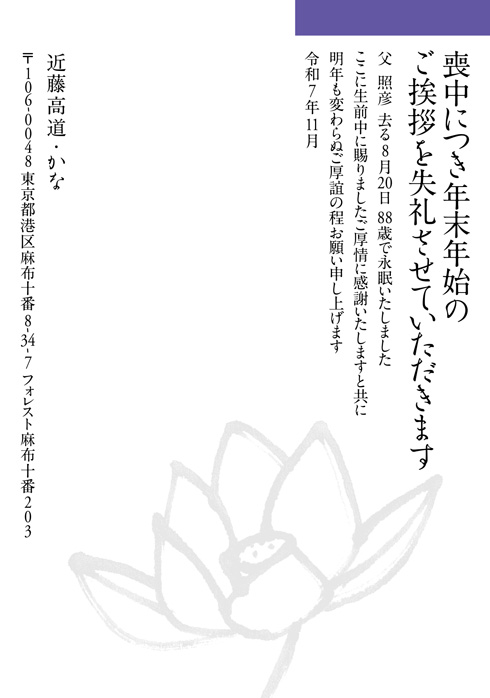 喪中につき年末年始の
ご挨拶を失礼させていただきます
父 照彦 去る8月20日 88歳で永眠いたしました
ここに生前中に賜りましたご厚情に感謝いたしますと共に
明年も変わらぬご厚誼の程お願い申し上げます
令和7年11月
近藤高道・かな
〒106-0048 東京都港区麻布十番8-34-7 フォレスト麻布十番203